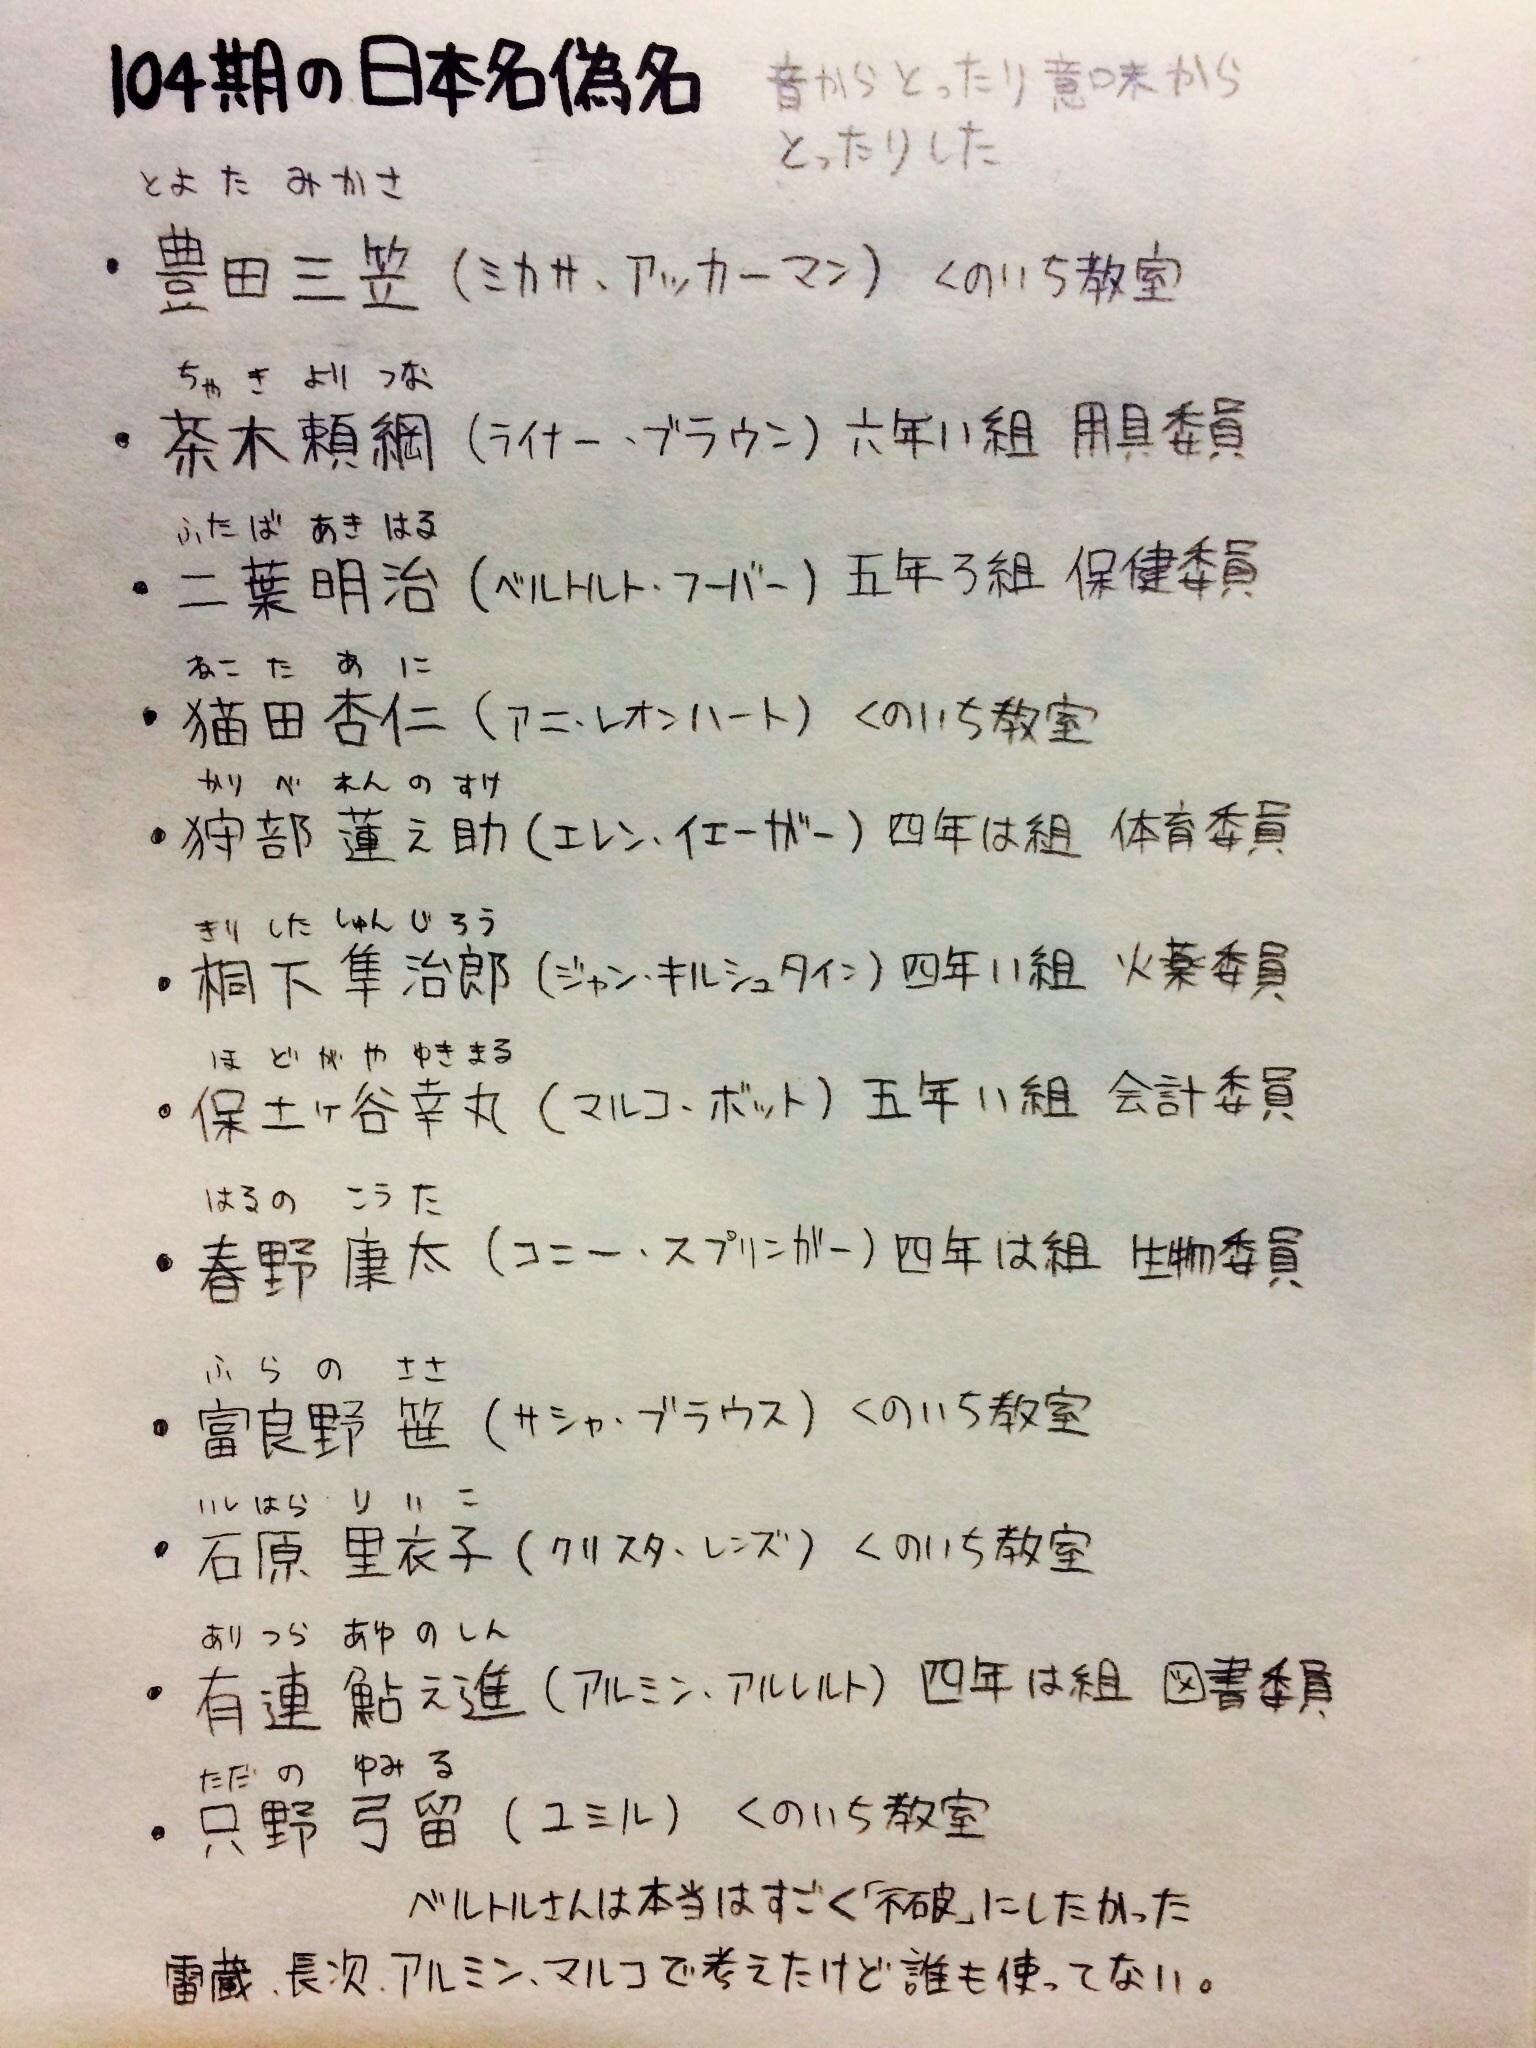 104期の日本名偽名
音からとったり意味から
とったりした
とよた みかさ
・豊田三笠（ミカサ、アッカーマン） くのいち教室
ちゃき よりつな
・茶木頼綱（ライナー、ブラウン）六年い組 用具委員
ふたば あきはる
・二葉明治（ベルトルト・フーバー）五年ろ組 保健委員
ねこた あに
・猫田杏仁（アニ・レオンハート） くのいち教室
かりべ れんのすけ
・狩部 蓮之助（エレン、イエーガー）四年は組 体育委員
きりした しゅんじろう
・桐下 隼治郎（ジャン・キルシュタイン）四年い組 火薬委員
ほどがや ゆきまる
・保土ヶ谷幸丸（マルコ、ボット）五年い組 会計委員
はるの こうた
・春野 康太（コニー・スプリンガー）四年は組 生物委員
ふらの ささ
・富良野 笹（サシャ・ブラウス） くのいち教室
いしはら りいこ
・石原 里衣子（クリスタ、レンズ） くのいち教室
ありつら あゆのしん
・有連 鮎之進（アルミン、アルレルト） 四年は組 図書委員
ただの ゆみる
・只野 弓留（ユミル） くのいち教室
ベルトルさんは本当はすごく「不破」にしたかった
雷蔵、長次、アルミン、マルコで考えたけど誰も使ってない。